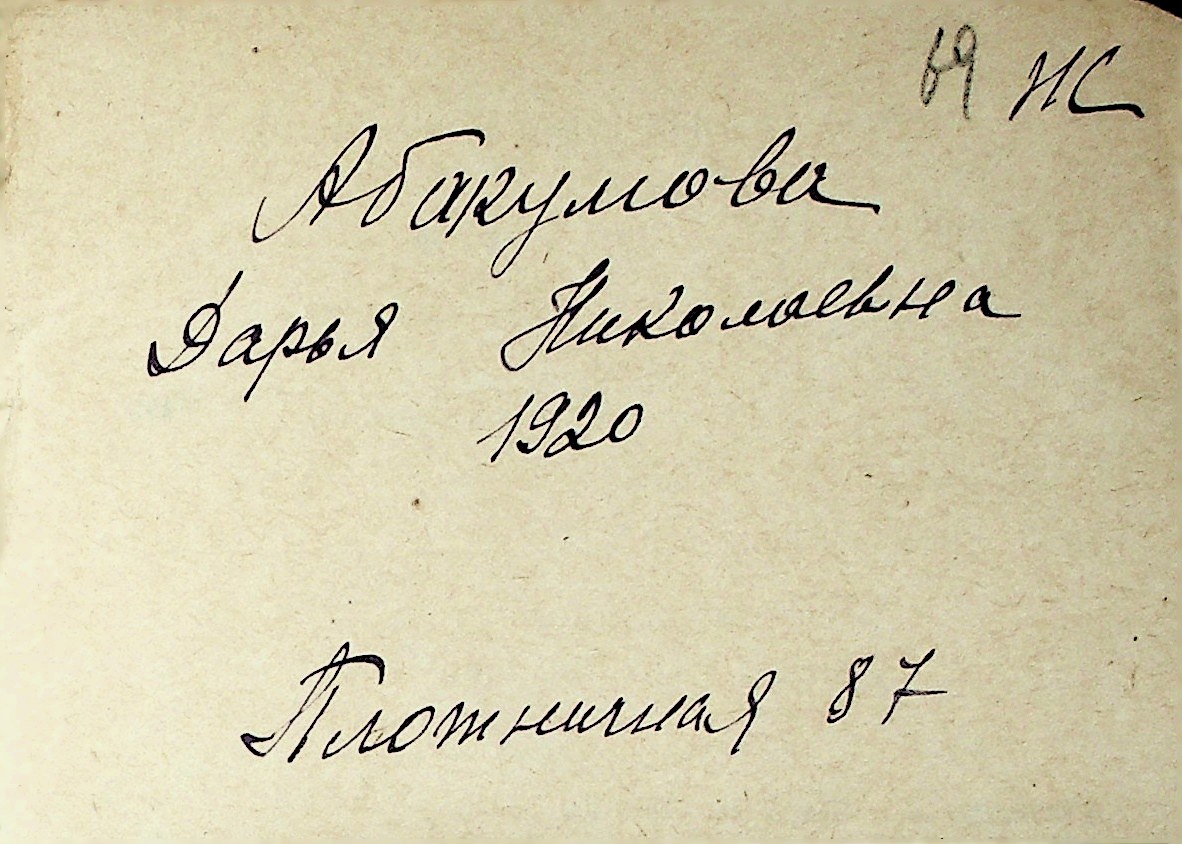 69 НС
Абакумова
Дарья Николаевна
1920
Плотничная 87